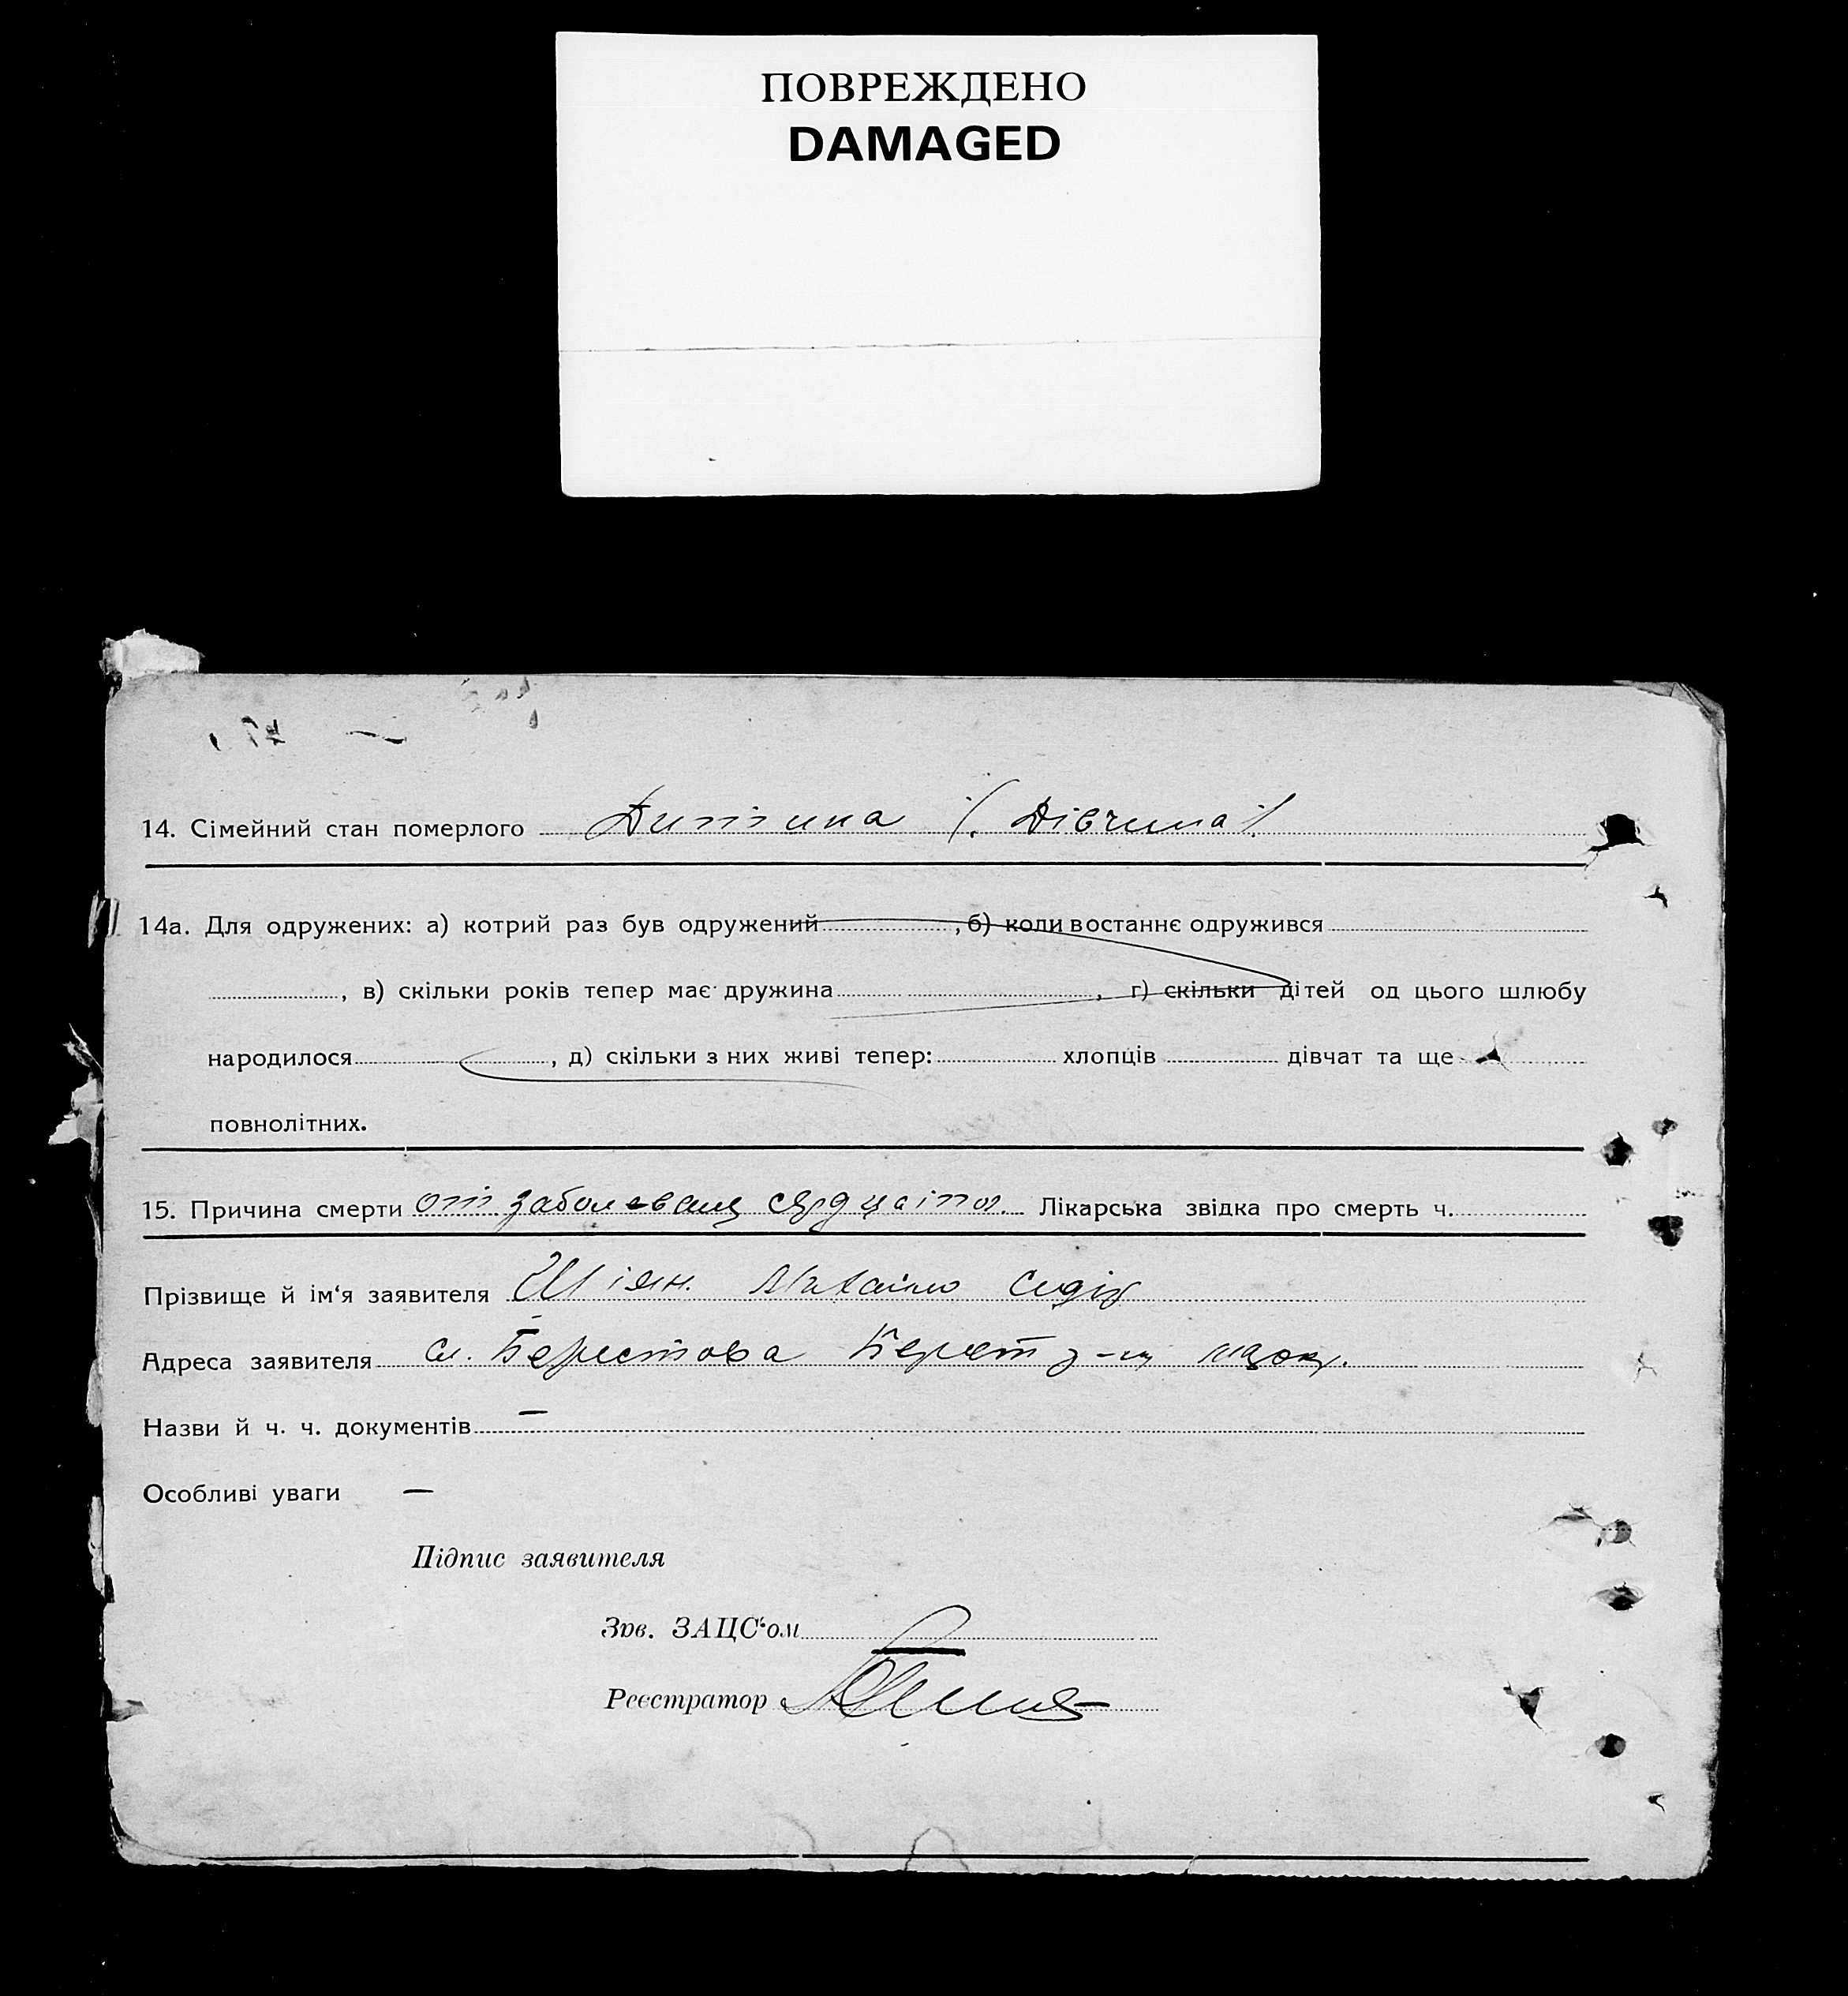 ПОВРЕЖДЕНО
DAMAGED
14. Сімейний стан померлого Дитина /. Дівчина /.
14а. Для одружених: а) котрий раз був одружений, б) коли востаннє одружився
, в) скільки років тепер має дружина, г) скільки дітей од цього шлюбу
народилося, д) скільки з них живі тепер: хлопців дівчат та ще
повнолітних.
15. Причина смерти от заболеваня Лікарська звідка про смерть ч.
Прізвище й ім'я заявителя Шіян. Михайло
Адреса заявителя сл. Берестова Берест
Назви й ч. ч. документів —
Особливі уваги —
Підпис заявителя
Зав. ЗАЦС'ом
Реєстратор